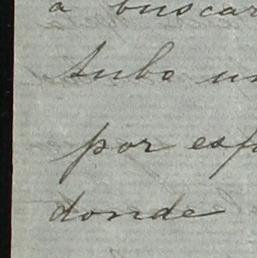 a buscar
subo un
por esp
donde